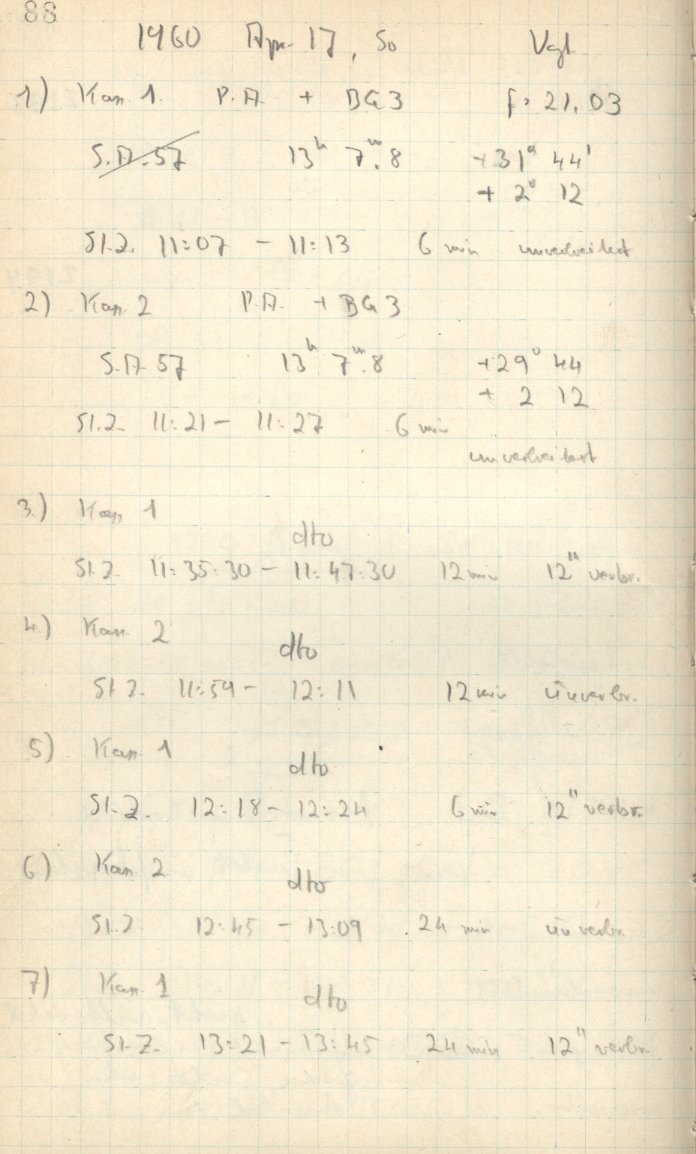 88
1960 Apr. 17, So Vgl.
1) Kam. 1. P.A. + BG3 f = 21.03
S.A. 57 13h 7m.8 +31° 44'
+ 2° 12
St.Z. 11:07 - 11:13 6 min unverbreitert
2) Kam. 2 P.A. + BG3
S.A. 57 13h 7m.8 +29° 44
+ 2 12
St.Z. 11:21 - 11:27 6 min
unverbreitert
3.) Kam 1
dto
St.Z. 11:35:30 - 11:47:30 12 min 12" verbr.
4.) Kam. 2
dto
St.Z. 11:59 - 12:11 12 min unverbr.
5) Kam. 1
dto
St.Z. 12:18 - 12:24 6 min 12" verbr.
6) Kam 2
dto
St.Z. 12:45 - 13:09 24 min unverbr.
7) Kam 1
dto
St.Z. 13:21 - 13:45 24 min 12" verbr.